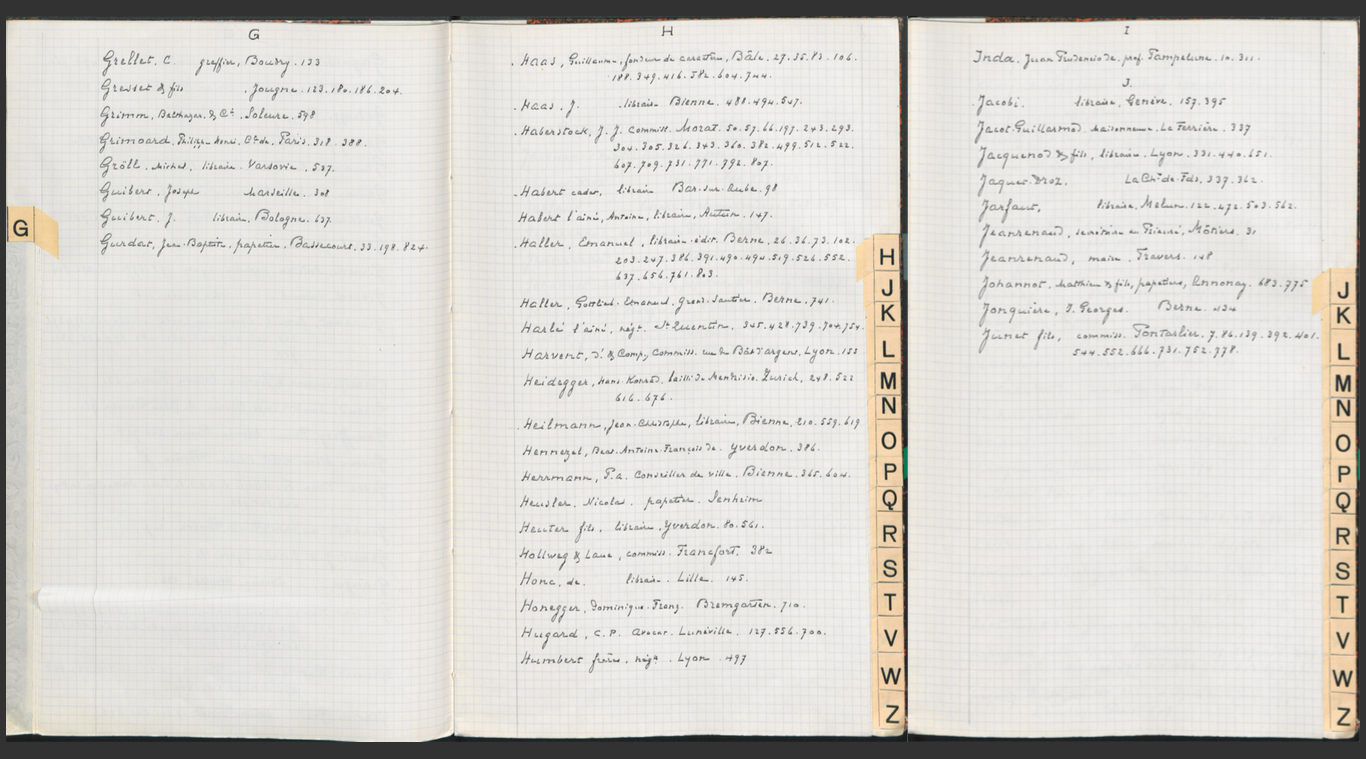 G
Grellet. C. greffier, Boudry. 133
Gresset & fils . Jougne. 123. 180. 186. 204.
Grimm, Balthazar, & Cie. Soleure. 598
Grimoard, Philipp. Henri, Cte de, Paris. 318. 388.
Gröll. Michel, libraire. Varsovie. 537.
Guibert, Joseph Marseille. 308
Guibert. J. libraire, Bologne. 637.
Gurdat, Jean-Baptiste, papetier, Bassecourt. 33. 198. 824.
G
H
Haas, Guillaume, fondeur de caractères, Bâle. 27. 35. 83. 106.
188. 349. 416. 582. 604. 744.
Haas, J. libraire Bienne. 488. 494. 507.
Haberstock, J. J. Commiss. Morat. 50. 57. 66. 197. 243. 293.
304. 305. 326. 343. 360. 382. 499. 512. 522.
607. 709. 731. 771. 792. 807.
Habert cadet, libraire Bar-sur-Aube. 98
Habert l'ainé, Antoine, libraire, Autun. 147.
Haller, Emanuel, libraire-édit. Berne, 26. 36. 73. 102.
203. 247. 386. 391. 490. 494. 519. 526. 552.
637. 656. 761. 803.
Haller, Gottlieb-Emanuel, Berne. 741.
Harlé l'ainé, négt. St Quentin, 345. 428. 739. 704. 754.
Harvent, & Comp, Commiss. rue du Bât d'argent, Lyon. 153
Heidegger, Hans-Konrad, bailli de Mendrisio. Zurich, 248. 522
616. 676.
Heilmann, Jean-Christophe, libraire, Bienne, 210. 559. 619
Hennezel, Beat-Antoine-François de. Yverdon. 386.
Herrmann, P.a. Conseiller de ville. Bienne. 365. 604.
Heusler, Nicolas. papetier. Senheim
Heuter fils, libraire, Yverdon. 80. 561.
Hollweg & Laue, commiss. Francfort. 382
Honc, de. libraire. Lille. 145.
Honegger, Dominique-Franz. Bremgarten. 710.
Hugard, C. P. avocat. Lunéville. 127. 556. 700.
Humbert frères. négts. Lyon. 497
H
J
K
L
M
N
O
P
Q
R
S
T
V
W
Z
I
Inda. Juan Prudencio de, prof. Pampelune. 10. 311.
J.
Jacobi. libraire, Genève, 157. 395
Jacot-Guillarmod. Maisonneuve. La Ferrière. 337
Jacquenod & fils, libraire. Lyon. 331. 440. 651.
Jaquet-Droz. La Chx-de-Fds, 337. 362.
Jarfaut, libraire, Melun. 122. 472. 503. 562.
Jeanrenaud, secrétaire au Prieuré, Môtiers. 31
Jeanrenaud, maire. Travers. 148
Johannot, Matthieu & fils, papetiers, Annonay. 683. 775
Jonquière, F. Georges. Berne. 434
Junet fils, commiss. Pontarlier. 7. 86. 139. 392. 401.
544. 552. 666. 731. 752. 778.
J
K
L
M
N
O
P
Q
R
S
T
V
W
Z